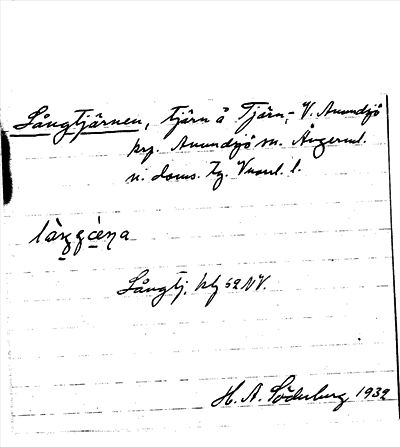 Långtjärnen, tjärn å Tjärn, V. Anundsjö
krp. Anundsjö sn. Ångerml.
n. doms. tg. Vnorrl. l.
Långtj. kbl 62 NV.
H. A. Söderberg 1932